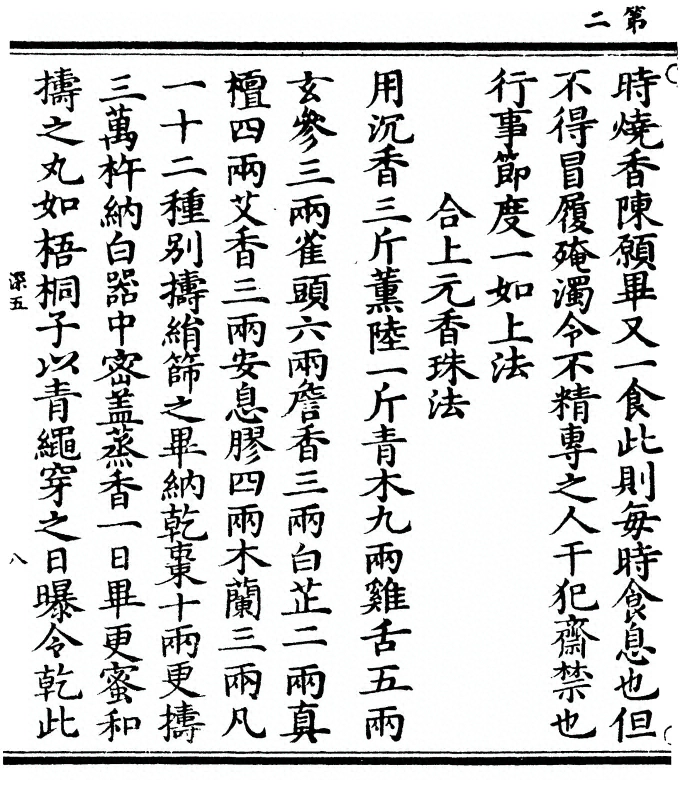 第二
時燒香陳願畢又一食此則每時食息也但
不得冒履殗濁令不精專之人干犯齋禁也
行事節度一如上法
合上元香珠法
用沉香三斤薰陸一斤青木九兩雞舌五兩
玄參三兩雀頭六兩詹香三兩白芷二兩真
檀四兩艾香三兩安息膠四兩木蘭三兩凡
一十二種別擣絹篩之畢納乾棗十兩更擣
三萬杵納白器中密盖蒸香一日畢更蜜和
擣之丸如梧桐子以青繩穿之日曝令乾此
深五
八